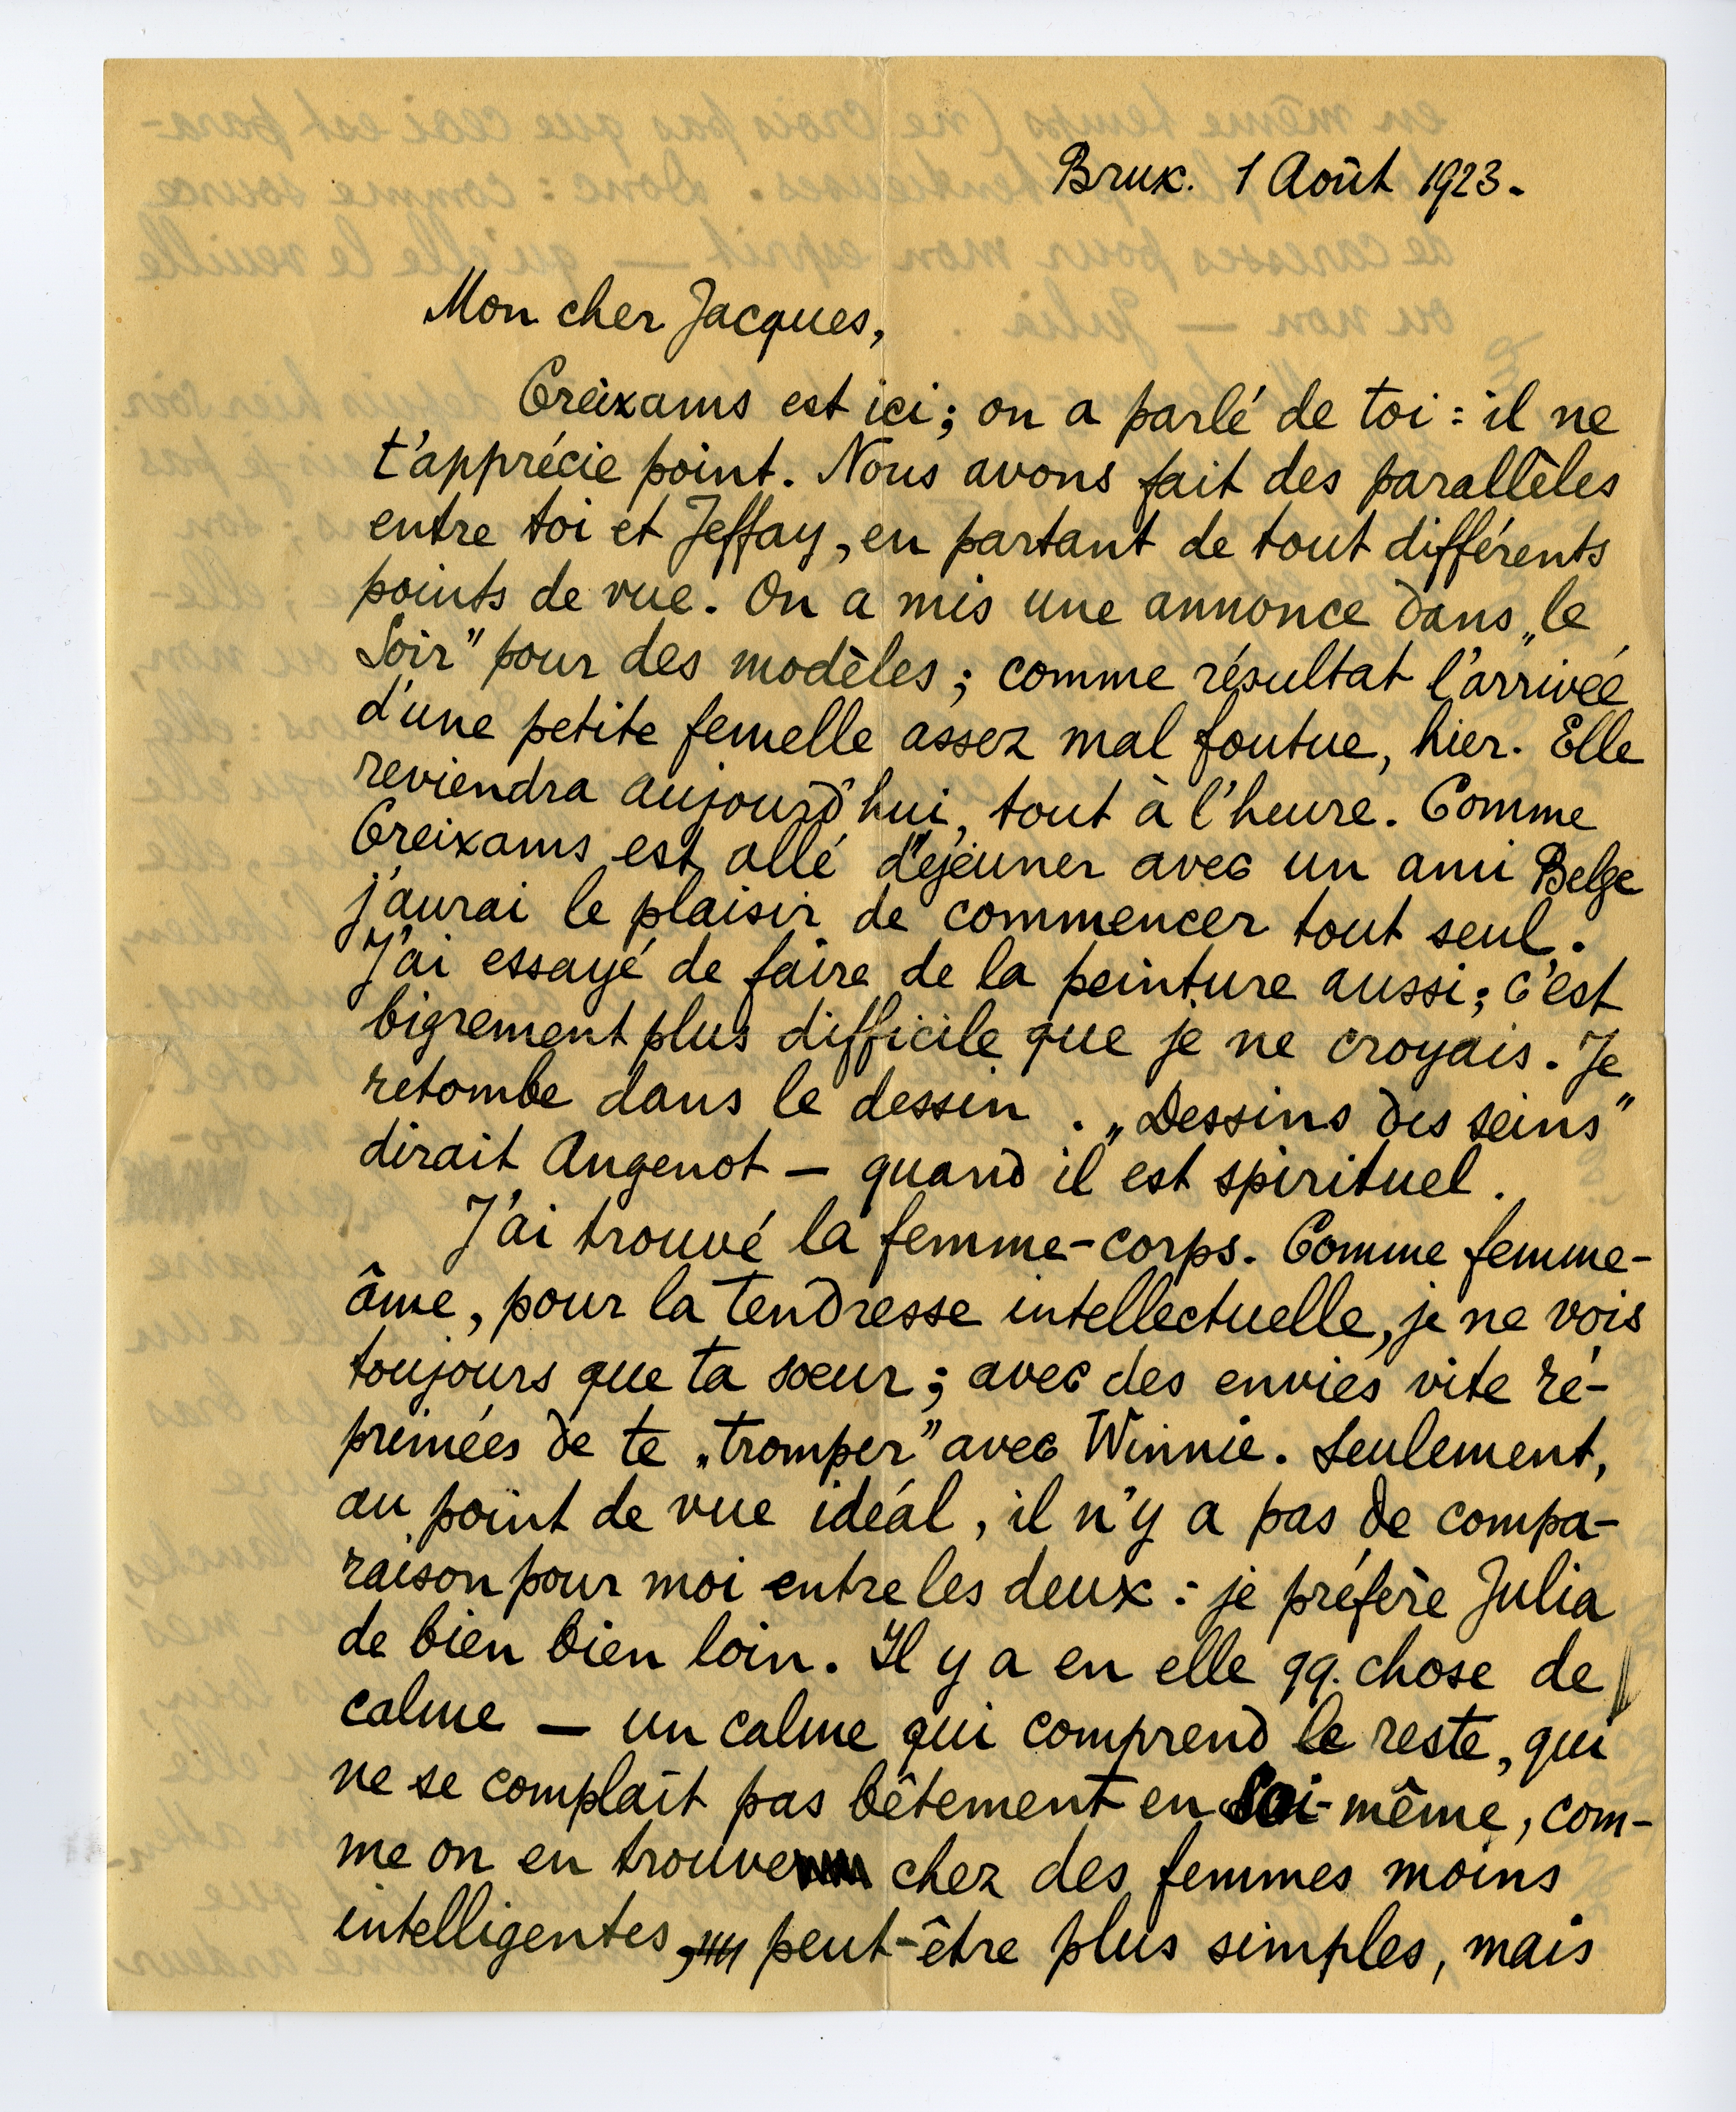 Brux. 1 Août 1923.
Mon cher Jacques,
Creixams est ici ; on a parlé de toi : il ne
t'apprécie point. Nous avons fait des parallèles
entre toi et Jeffay, en partant de tout différents
points de vue. On a mis une annonce dans „le
Soir” pour des modèles ; comme résultat l'arrivée
d'une petite femelle assez mal foutue, hier. Elle
reviendra aujourd'hui, tout à l'heure. Comme
Creixams est allé déjeuner avec un ami Belge
j'aurai le plaisir de commencer tout seul.
J'ai essayé de faire de la peinture aussi ; c'est
bigrement plus difficile que je ne croyais. Je
retombe dans le dessin. „Dessins des seins”
dirait Angenot — quand il est spirituel.
J'ai trouvé la femme-corps. Comme femme-
âme, pour la tendresse intellectuelle, je ne vois
toujours que ta sœur ; avec des envies vite ré-
primées de te „tromper” avec Winnie. Seulement,
au point de vue idéal, il n'y a pas de compa-
raison pour moi entre les deux : je préfère Julia
de bien bien loin. Il y a en elle qq. chose de
calme — un calme qui comprend le reste, qui
ne se complaît pas bêtement en soi-même, com-
me on en trouve chez des femmes moins
intelligentes, peut-être plus simples, mais